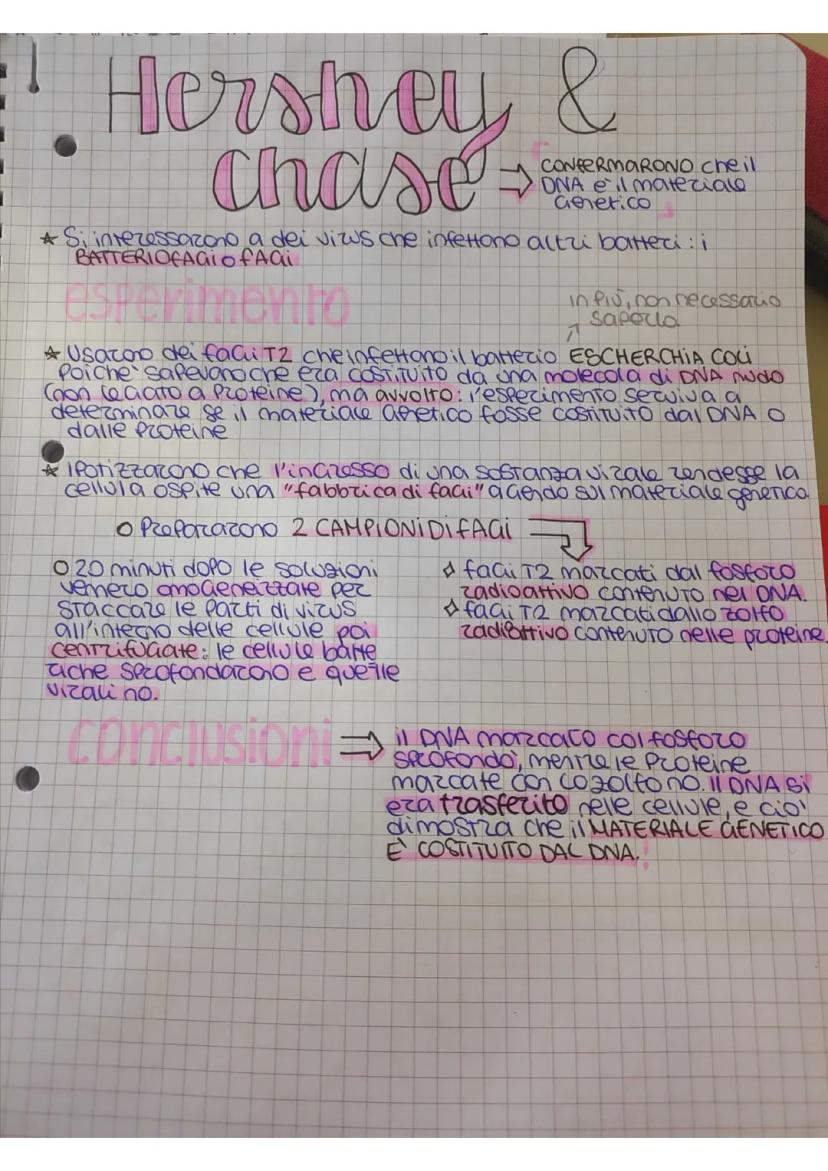 Hershey &
chase
⇒ CONFERMARONO che il
DNA è il materiale
genetico
★ Si interessarono a dei virus che infettano altri batteri: i
BATTERIOFAGI o FAGI
esperimento
in più, non necessario
saperlo
★ Usarono dei fagi T2 che infettano il batterio ESCHERCHIA COLI
poiché sapevano che era costituito da una molecola di DNA nudo
(non legato a proteine), ma avvolto: l'esperimento serviva a
determinare se il materiale genetico fosse costituito dal DNA o
dalle proteine
★ Ipotizzarono che l'ingresso di una sostanza virale rendesse la
cellula ospite una "fabbrica di fagi" agendo sul materiale genetico
O Prepararono 2 CAMPIONI DI FAGI
O 20 minuti dopo le soluzioni
vennero omogeneizzate per
staccare le parti di virus
all'interno delle cellule poi
centrifugate: le cellule batte
riche sprofondarono e quelle
virali no.
◇ fagi T2 marcati dal fosforo
radioattivo contenuto nel DNA.
◇ fagi T2 marcati dallo zolfo
radioattivo contenuto nelle proteine
conclusioni
⇒ il DNA marcato col fosforo
sprofondò, mentre le proteine
marcate con lo zolfo no. Il DNA si
era trasferito nelle cellule, e ciò
dimostra che il MATERIALE GENETICO
È COSTITUITO DAL DNA.!